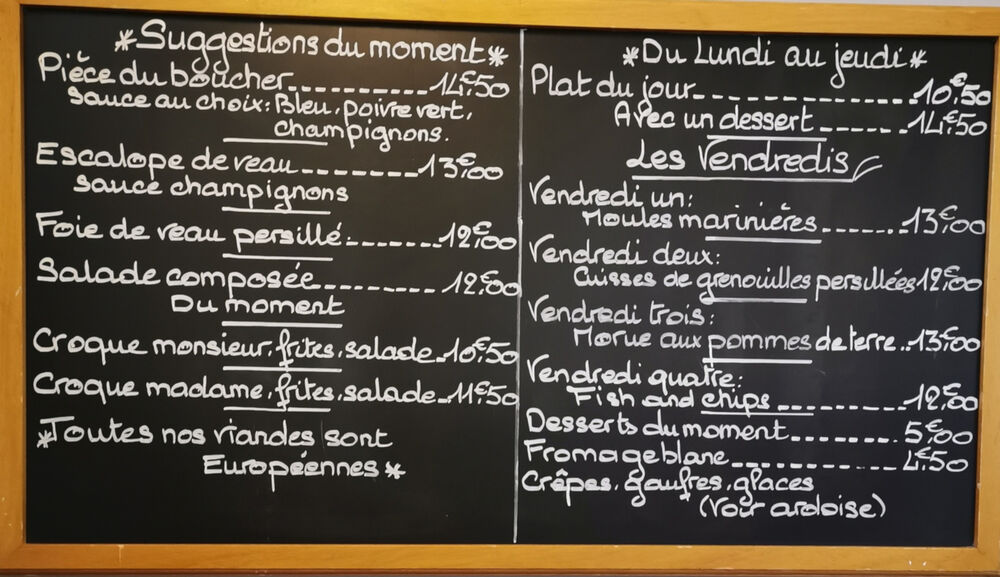 *Suggestions du moment*
Pièce du boucher............14€50
Sauce au choix: Bleu, poivre vert,
champignons.
Escalope de veau........13€00
Sauce champignons
Foie de veau persillé........12€00
Salade composée..........12€00
Du moment
Croque monsieur, frites, salade..10€50
Croque madame, frites, salade..11€50
*Toutes nos viandes sont
Européennes*
*Du Lundi au jeudi*
Plat du jour...............10€50
Avec un dessert......14€50
Les Vendredis
Vendredi un:
Moules marinières......13€00
Vendredi deux:
Cuisses de grenouilles persillées 12€00
Vendredi trois:
Morue aux pommes de terre..13€00
Vendredi quatre:
Fish and chips.........12€00
Desserts du moment........5€00
Fromage blanc............4€50
Crêpes, gaufres, glaces
(Voir ardoise)